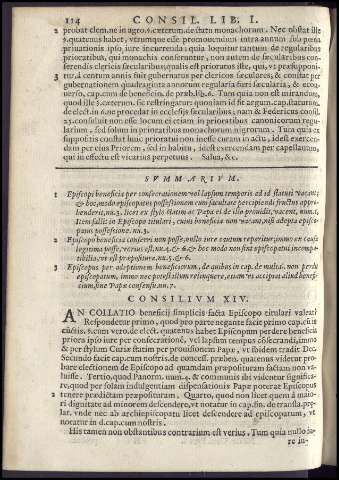 114 CONSIL. LIB. I.
2 probat clem. ne in agro. §. cæterum. de statu monachorum. Nec obstat ille
§. quatenus habet, verumque esse promouendus intra annum sub pœna
priuationis ipso iure incurrenda: quia loquitur tantum de regularibus
prioratibus, qui monachis conferuntur, non autem de sæcularibus con-
ferendis clericis sæcularibus qualis est prioratus iste, qui, vt præsupponi-
3 tur, à centum annis fuit gubernatus per clericos sæculares, & constat per
gubernationem quadraginta annorum regularia fieri sæcularia, & eco-
uerso, cap. cum de beneficio, de præb. lib. 6. Tum quia non est mirandum,
quod ille §. cæterum. sic restringatur: quoniam id fit argum. cap. statutum.
de elect. in 6. ne procedat in ecclesijs sæcularibus, nam & Federicus consil.
23. consuluit non esse locum ei etiam in prioratibus canonicorum regu-
larium, sed solum in prioratibus monachorum nigrorum. Tum quia ex
suppositis constat hunc prioratum non inesse curam in actu, id est exercen-
dam per eius Priorem, sed in habitu, id est exercendam per capellanum,
qui in effectu est vicarius perpetuus. Salua, &c.
SVMMARIVM.
1 Episcopi beneficia per consecrationem vel lapsum temporis ad id statuti vacant;
& hoc, modò episcopatus possessionem cum facultate percipiendi fructus appre-
henderit, nu. 3. licet ex stylo statim ac Papa ei de illo prouidit, vacent, num. 1.
Item fallit in Episcopo titulari, cuius beneficia non vacant, nisi adepta episco-
patus possessione. nu. 3.
2 Episcopo beneficia conferri non posse, nullo iure cautum reperitur, immo ex causa
legitima posse, verius est. nu. 4. & 6. & hoc modò non sint episcopatui incompa-
tibilia, vt est præpositura. nu. 5. & 6.
3 Episcopus per adeptionem beneficiorum, de quibus in cap. de multa. non perdit
episcopatum, immo nec possessillum relinquere, etiam vt accipiat aliud benefi-
cium, sine Papæ consensu. nu. 7.
CONSILIVM XIV.
AN COLLATIO beneficij simplicis facta Episcopo titulari valeat?
Respondetur primo, quod pro parte negante facit primo cap. cùm in
cunctis. §. cum vero. de elect. quatenus habet Episcopum perdere beneficia
priora ipso iure per consecrationem, vel lapsum tempus consecrandi, immo
& per stylum Curiæ statim per promotionem Papæ, vt ibidem tradit Dec.
Secundo facit cap. cum nostris. de concess. præben. quatenus videtur pro-
bare electionem de Episcopo ad quamdam præposituram factam non va-
luisse. Tertio, quod Panorm. num. 4. & communis ibi videntur significa-
re, quod per solam indulgentiam dispensationis Papæ poterat Episcopus
2 tenere prædictam præposituram. Quarto, quod non licet quem à maio-
ri dignitate ad minorem descendere, vt notatur in cap. fin. de transla. præ-
lat. vnde nec ab archiepiscopatu licet descendere ad episcopatum, vt
notatur in d. cap. cum nostris.
His tamen non obstantibus contrarium est verius. Tum quia nullo iu-
re in-